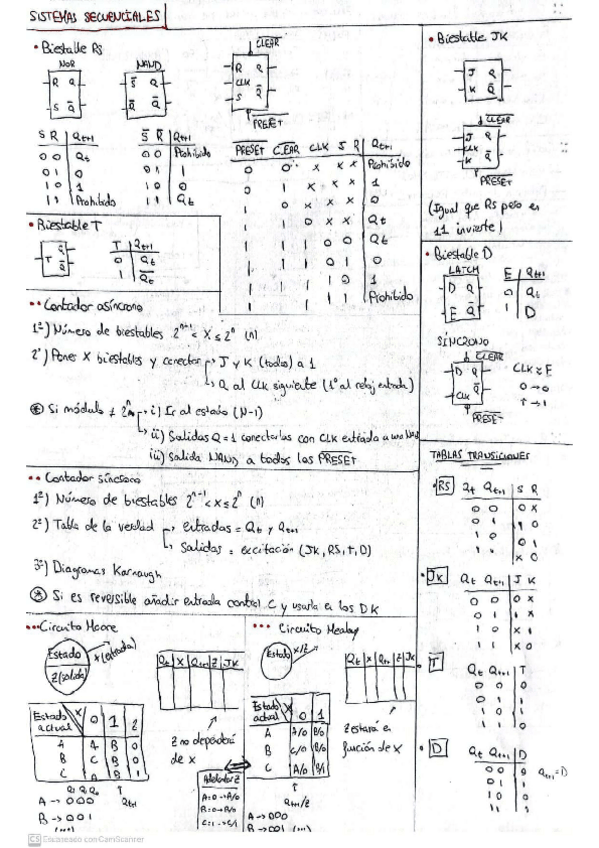 SISTEMAS SECUENCIALES
• Biestable RS
NOR
R Q
S Q̅
NAND
S̅ Q
R̅ Q̅
CLEAR
R Q
CLK
S Q̅
PRESET
S R Qt+1
0 0 Qt
0 1 0
1 0 1
1 1 Prohibido
S̅ R̅ Qt+1
0 0 Prohibido
0 1 1
1 0 0
1 1 Qt
PRESET CLEAR CLK S R Qt+1
0 0 x x x Prohibido
0 1 x x x 1
1 0 x x x 0
1 1 0 x x Qt
1 1 1 0 0 Qt
1 1 1 0 1 0
1 1 1 1 0 1
1 1 1 1 1 Prohibido
• Biestable T
T Q
Q̅
T Qt+1
0 Qt
1 Q̅t
• Biestable JK
J Q
K Q̅
CLEAR
J Q
CLK
K Q̅
PRESET
(Igual que RS pero en
11 invierte)
• Biestable D
LATCH
D Q
E Q̅
E Qt+1
0 Qt
1 D
SÍNCRONO
CLEAR
D Q
CLK Q̅
PRESET
CLK ≈ E
0 → 0
↑ → 1
•• Contador asíncrono
1º) Número de biestables 2ⁿ⁻¹ < X ≤ 2ⁿ (n)
2º) Poner X biestables y conectar → J y K (todos) a 1
→ Q al CLK siguiente (1º al reloj entrada)
* Si módulo ≠ 2ⁿ → i) Ir al estado (N-1)
ii) Salidas Q=1 conectarlas con CLK entrada a una NAND
iii) Salida NAND a todos los PRESET
•• Contador síncrono
1º) Número de biestables 2ⁿ⁻¹ < X ≤ 2ⁿ (n)
2º) Tabla de la verdad → entradas = Qt y Qt+1
→ Salidas = excitación (JK, RS, T, D)
3º) Diagramas Karnaugh
* Si es reversible añadir entrada control C y usarla en los DK
TABLAS TRANSICIONES
• RS Qt Qt+1 S R
0 0 0 x
0 1 1 0
1 0 0 1
1 1 x 0
• JK Qt Qt+1 J K
0 0 0 x
0 1 1 x
1 0 x 1
1 1 x 0
• T Qt Qt+1 T
0 0 0
0 1 1
1 0 1
1 1 0
• D Qt Qt+1 D
0 0 0
0 1 1
1 0 0
1 1 1
Qt+1 = D
••• Circuito Moore
Estado
Z (salida)
X (entrada)
Qt X Qt+1 Z JK
Z no dependerá
de X
Estado actual X 0 1 Z
A A B 0
B C B 0
C A B 1
Qt+1
A → 000
B → 001
(...)
••• Circuito Mealy
Estado X/Z
Qt X Qt+1 Z JK
Z estará en
función de X
Estado actual X 0 1
A A/0 B/0
B C/0 B/0
C A/0 B/1
Qt+1/Z
A → 000
B → 001 (...)
A=0 → A/0
B=0 → B/0
C=1 → C/1
CS Escaneado con CamScanner